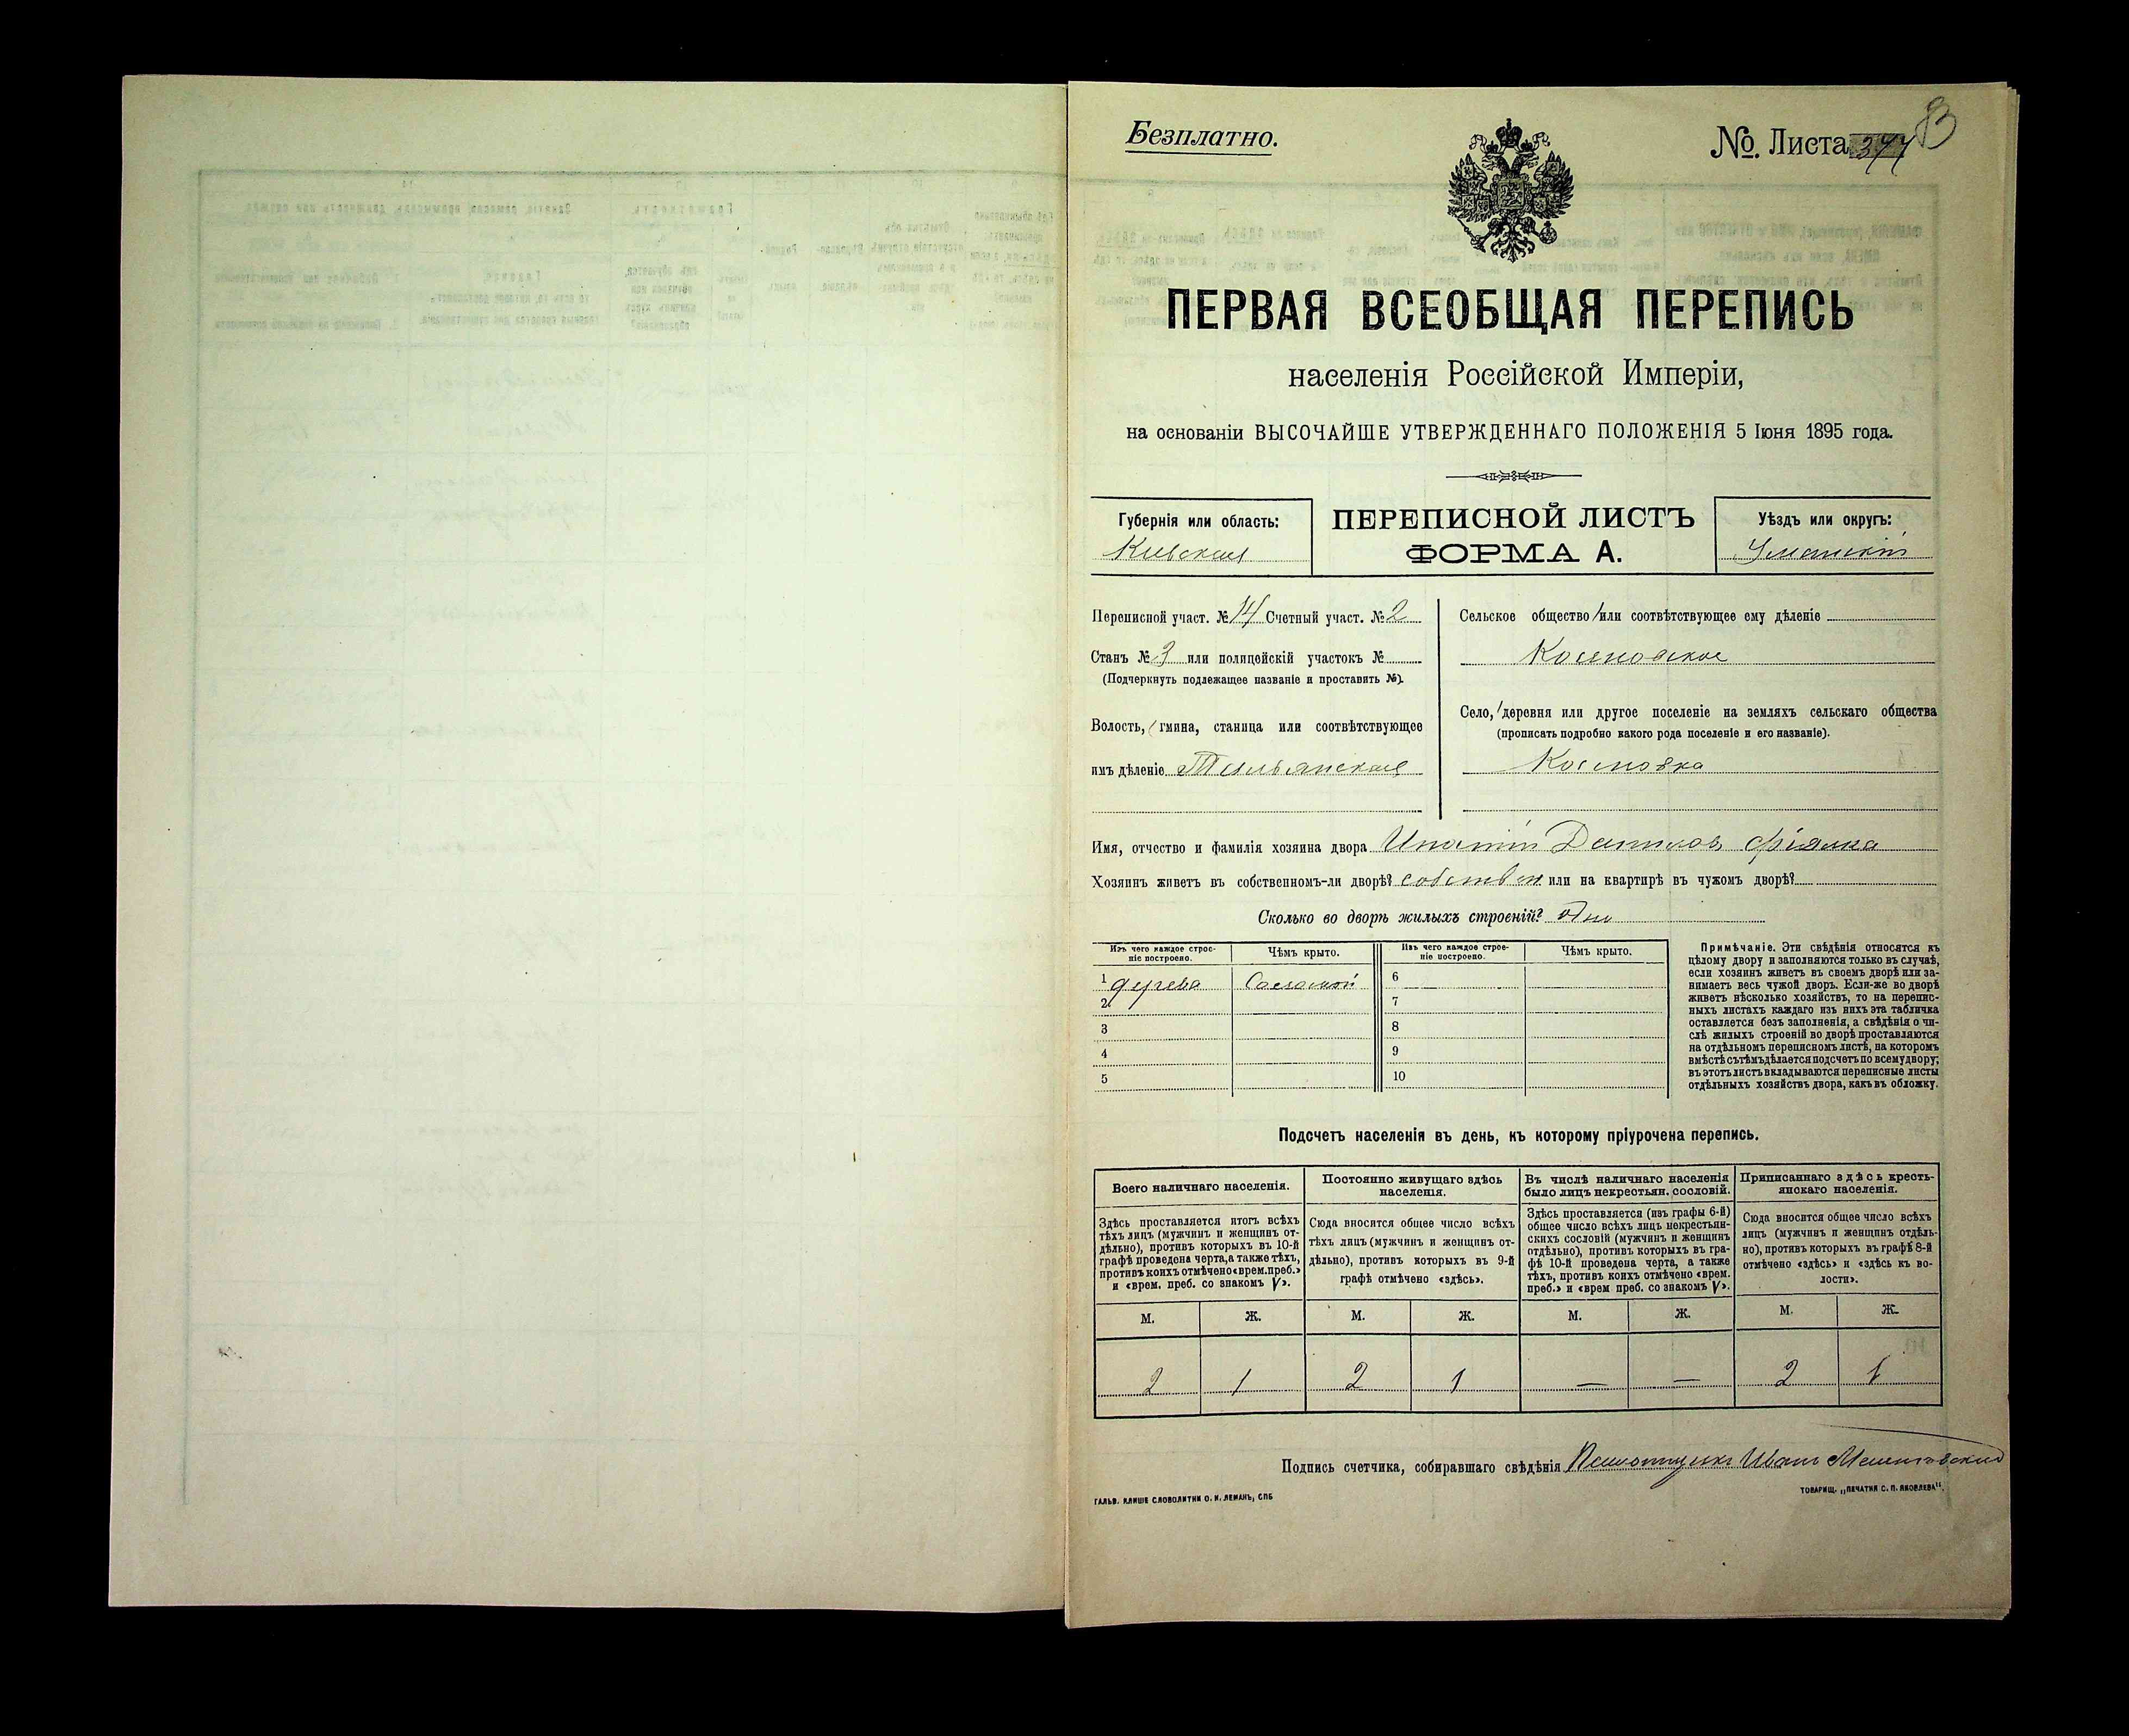 Безплатно.
№ Листа 377
ПЕРВАЯ ВСЕОБЩАЯ ПЕРЕПИСЬ
населенія Россійской Имперіи,
на основаніи ВЫСОЧАЙШЕ УТВЕРЖДЕННАГО ПОЛОЖЕНІЯ 5 Іюня 1895 года.
Губернія или область:
Кіевская
ПЕРЕПИСНОЙ ЛИСТЪ
ФОРМА А.
Уѣздъ или округъ:
Уманскій
Переписной участ. № 14 Счетный участ. № 2
Станъ № 3 или полицейскій участокъ №
(Подчеркнуть подлежащее названіе и проставить №).
Волость, гмина, станица или соотвѣтствующее
имъ дѣленіе
Сельское общество или соотвѣтствующее ему дѣленіе
Село, деревня или другое поселеніе на земляхъ сельскаго общества
(прописать подробно какого рода поселеніе и его названіе).
Имя, отчество и фамилія хозяина двора Ипатій Данилов Фіялка
Хозяинъ живетъ въ собственномъ-ли дворѣ? собствен или на квартирѣ въ чужомъ дворѣ?
Сколько во дворѣ жилыхъ строеній? Одно
Изъ чего каждое строе-
ніе построено.
Чѣмъ крыто.
Изъ чего каждое строе-
ніе построено.
Чѣмъ крыто.
1 дерева Соломой 6
2 7
3 8
4 9
5 10
Примѣчаніе. Эти свѣдѣнія относятся къ
цѣлому двору и заполняются только въ случаѣ,
если хозяинъ живетъ въ своемъ дворѣ или за-
нимаетъ весь чужой дворъ. Если-же во дворѣ
живетъ нѣсколько хозяйствъ, то на перепис-
ныхъ листахъ каждаго изъ нихъ эта табличка
оставляется безъ заполненія, а свѣдѣнія о чи-
слѣ жилыхъ строеній во дворѣ проставляются
на отдѣльномъ переписномъ листѣ, на которомъ
вмѣстѣ съ тѣмъ дѣлается подсчетъ по всему двору;
въ этотъ листъ вкладываются переписные листы
отдѣльныхъ хозяйствъ двора, какъ въ обложку.
Подсчетъ населенія въ день, къ которому пріурочена перепись.
Всего наличнаго населенія.
Здѣсь проставляется итогъ всѣхъ
тѣхъ лицъ (мужчинъ и женщинъ от-
дѣльно), противъ которыхъ въ 10-й
графѣ проведена черта, а также тѣхъ,
противъ коихъ отмѣчено «врем. преб.»
и «врем. преб. со знакомъ V».
Постоянно живущаго здѣсь
населенія.
Сюда вносится общее число всѣхъ
тѣхъ лицъ (мужчинъ и женщинъ от-
дѣльно), противъ которыхъ въ 9-й
графѣ отмѣчено «здѣсь».
Въ числѣ наличнаго населенія
было лицъ некрестьян. сословій.
Здѣсь проставляется (изъ графы 6-й)
общее число всѣхъ лицъ некрестьян-
скихъ сословій (мужчинъ и женщинъ
отдѣльно), противъ которыхъ въ гра-
фѣ 10-й проведена черта, а также
тѣхъ, противъ коихъ отмѣчено «врем.
преб.» и «врем преб. со знакомъ V».
Приписаннаго здѣсь кресть-
янскаго населенія.
Сюда вносится общее число всѣхъ
лицъ (мужчинъ и женщинъ отдѣль-
но), противъ которыхъ въ графѣ 8-й
отмѣчено «здѣсь» и «здѣсь къ во-
лости».
М. Ж. М. Ж. М. Ж. М. Ж.
2 1 2 1 — — 2 1
Подпись счетчика, собиравшаго свѣдѣнія Иванъ
ГАЛЬВ. КЛИШЕ СЛОВОЛИТНИ О. И. ЛЕМАНЪ, СПБ
ТОВАРИЩ. „ПЕЧАТНЯ С. П. ЯКОВЛЕВА".